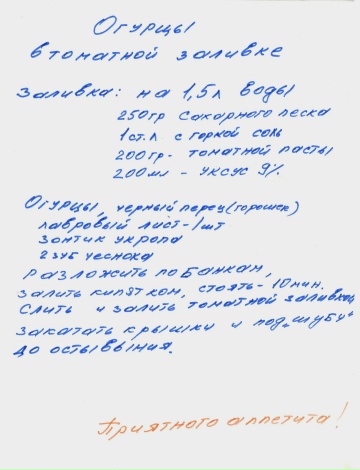 Огурцы
в томатной заливке
Заливка: на 1,5л воды
250гр Сахарного песка
1ст.л с горкой соль
200гр- томатной пасты
200мл - уксус 9%.
Огурцы, черный перец(горошек)
лавровый лист-1шт
зонтик укропа
2 зуб чеснока
разложить по банкам,
залить кипятком, стоять-10мин.
Слить и залить томатной заливкой
закатать крышки и под „шубу"
до остывыния.
Приятного аппетита!